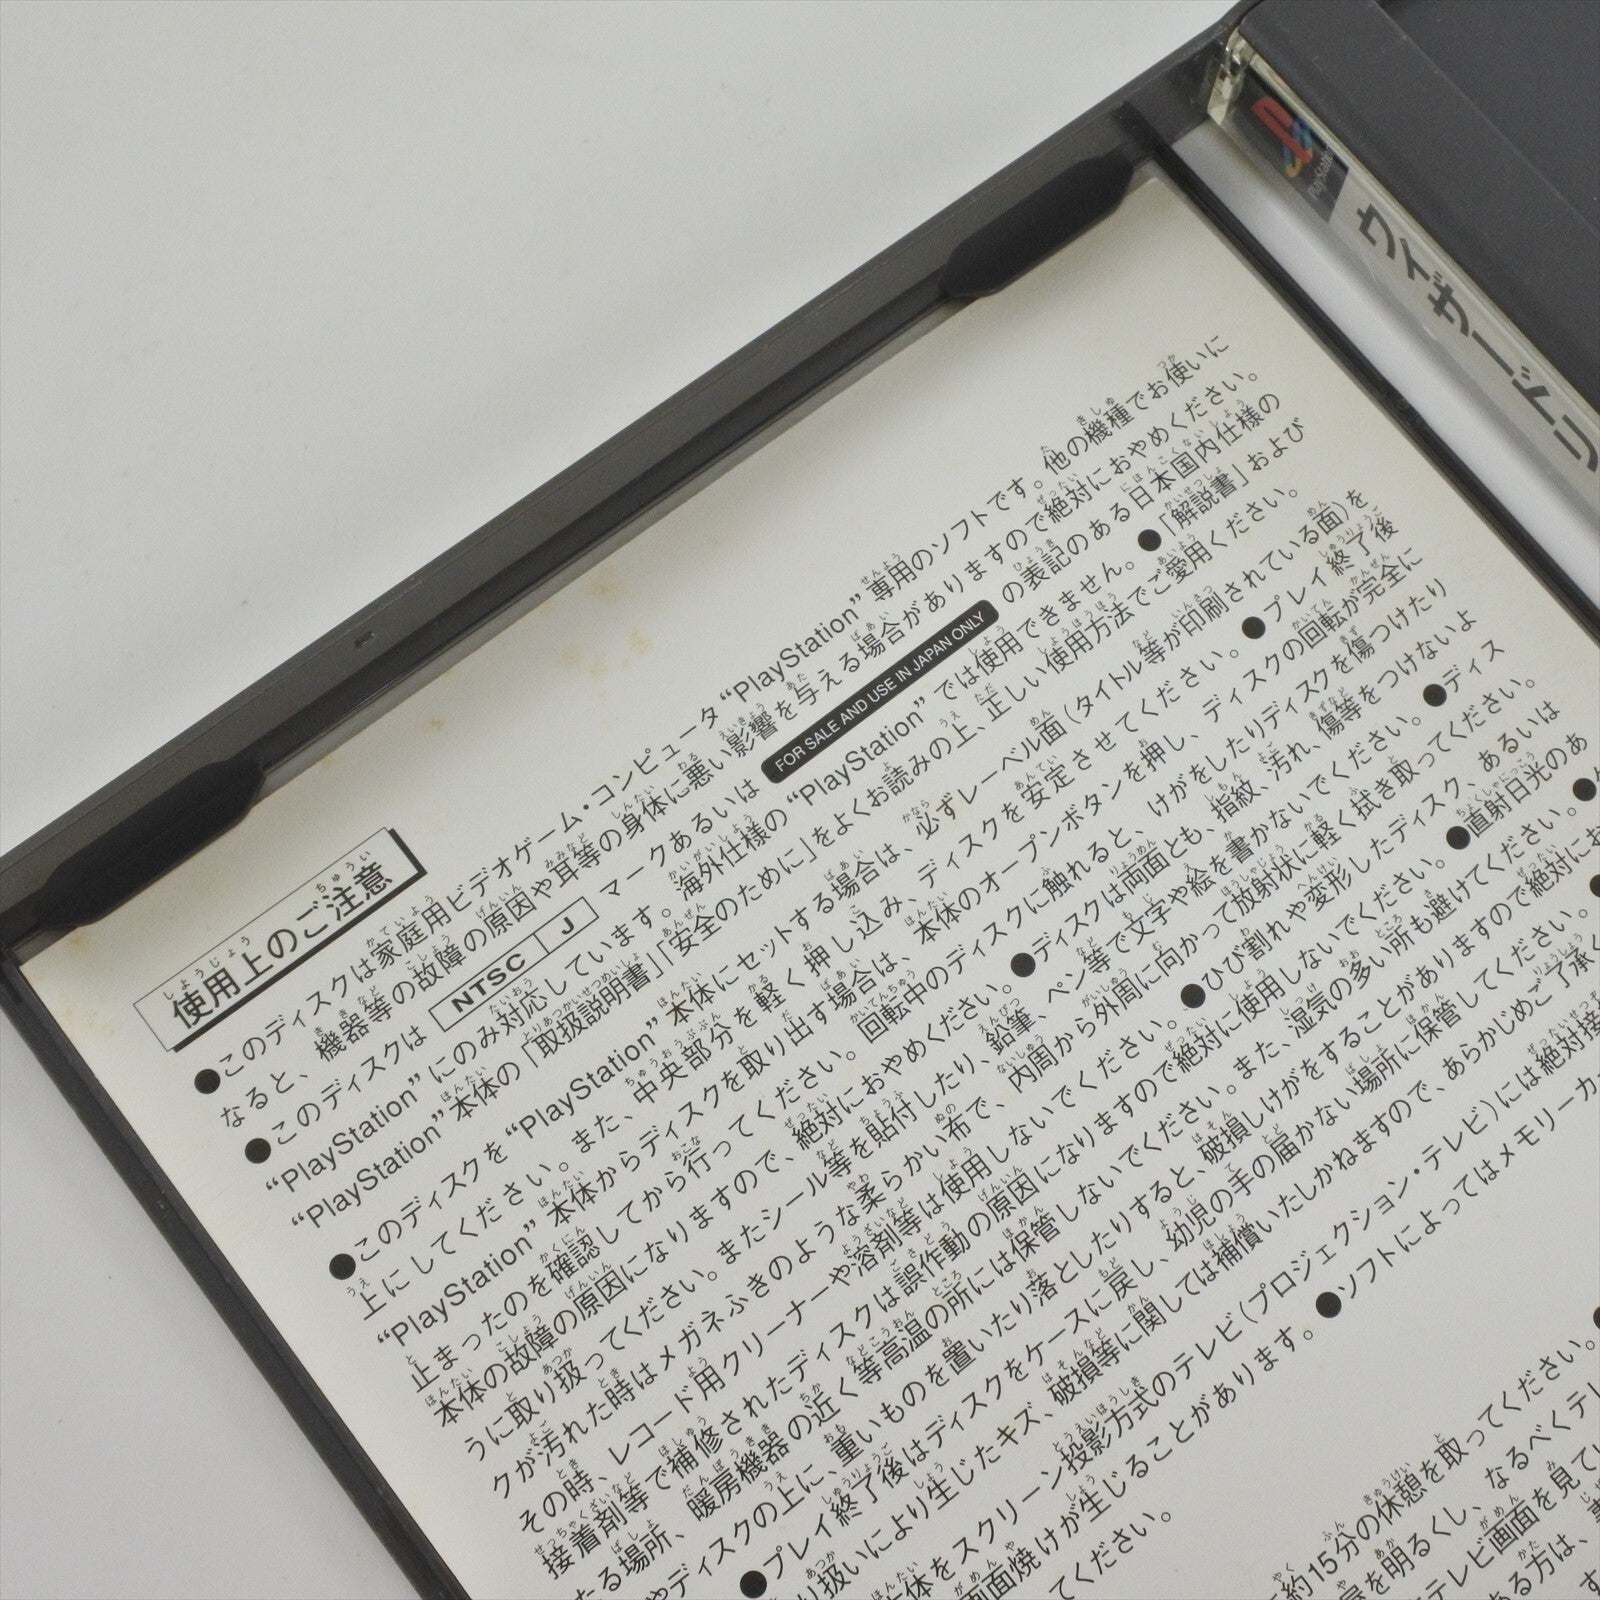 PlayStation
ウィザードリ
使用上のご注意
●このディスクは家庭用ビデオゲーム・コンピュータ“PlayStation”専用のソフトです。他の機種でお使いに
なると、機器等の故障の原因や耳等の身体に悪い影響を与える場合がありますので絶対におやめください。
●このディスクは NTSC J マークあるいは FOR SALE AND USE IN JAPAN ONLY の表記のある日本国内仕様の
“PlayStation”にのみ対応しています。海外仕様の“PlayStation”では使用できません。●「解説書」および
“PlayStation”本体の「取扱説明書」「安全のために」をよくお読みの上、正しい使用方法でご愛用ください。
●このディスクを“PlayStation”本体にセットする場合は、必ずレーベル面(タイトル等が印刷されている面)を
上にしてください。また、中央部分を軽く押し込み、ディスクを安定させてください。●プレイ終了後
“PlayStation”本体からディスクを取り出す場合は、本体のオープンボタンを押し、ディスクの回転が完全に
止まったのを確認してから行ってください。回転中のディスクに触れると、けがをしたりディスクを傷つけたり
本体の故障の原因になりますので、絶対におやめください。●ディスクは両面とも、指紋、汚れ、傷等をつけないよ
うに取り扱ってください。またシール等を貼付したり、鉛筆、ペン等で文字や絵を書かないでください。●ディス
クが汚れた時はメガネふきのような柔らかい布で、内周から外周に向かって放射状に軽く拭き取ってください。
その時、レコード用クリーナーや溶剤等は使用しないでください。●ひび割れや変形したディスク、あるいは
接着剤等で補修されたディスクは誤作動の原因になりますので絶対に使用しないでください。●直射日光のあ
たる場所、暖房機器の近く等高温の所には保管しないでください。また、湿気の多い所も避けてください。●
やディスクの上に、重いものを置いたり落としたりすると、破損しけがをすることがありますので絶対にお
●プレイ終了後はディスクをケースに戻し、幼児の手の届かない場所に保管してください。●
り扱いにより生じたキズ、破損等に関しては補償いたしかねますので、あらかじめご了承く
体をスクリーン投影方式のテレビ(プロジェクション・テレビ)には絶対接
画面焼けが生じることがあります。●ソフトによってはメモリーカ
てください。
約15分の休憩を取ってください。
を明るくし、なるべくテレ
テレビ画面を見てい
ある方は、